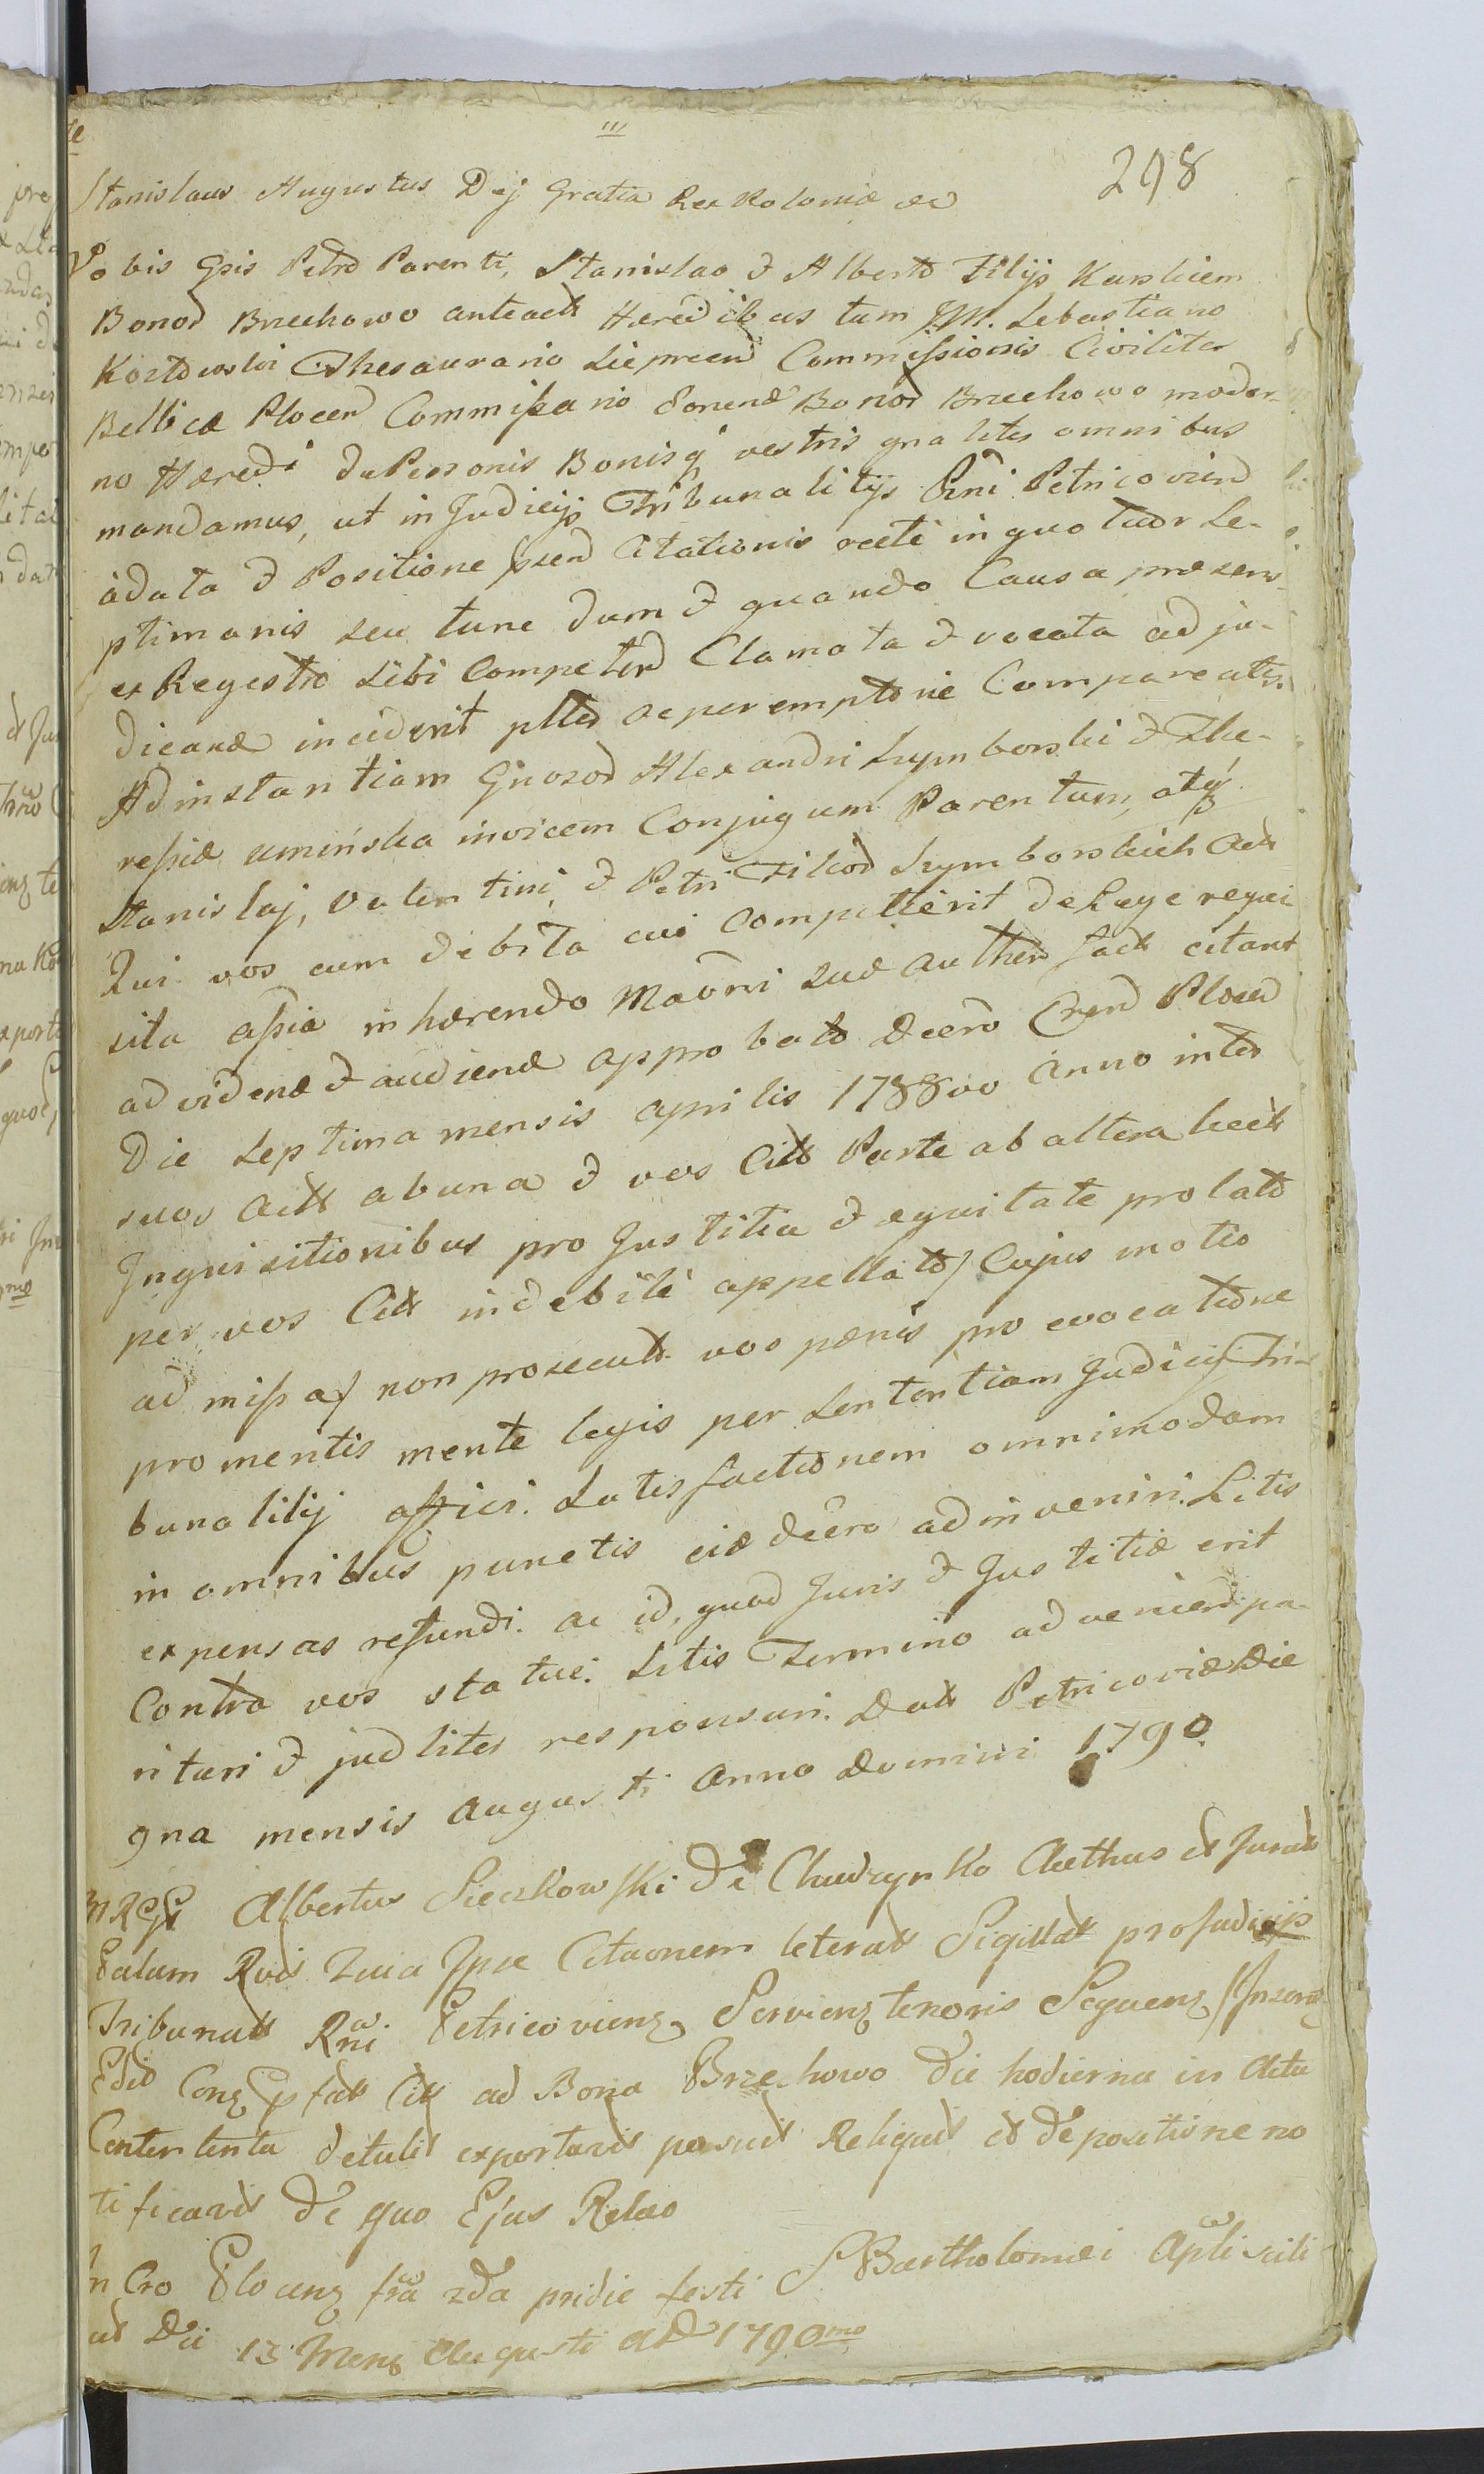 298
Stanislaus Augustus Dej Gratia Rex Poloniæ etc
Vobis Gsis Petro Parenti, Stanislao & Alberto Filijs Karskiem
Bonor Brzechowo anteact Hæredibus tum JM. Sebastiano
Thesaurario Commissionis Civilites
Bellicæ Plocen Commissario Bonor Brzechowo moder-
no Hæredi de Personis Bonisq vestris gnaliter omnibus
mandamus, ut in Judicijs Tribunalitijs Rni Petricovien
à data & Positione psen Citationis recte in quo tuor Se-
ptimanis seu tunc dum & quando Causa præsens
ex Regestro sibi Competen Clamata & vocata ad ju-
dicand inciderit pltes ac peremptorie Compareatis.
Ad instantiam Gnosor Alexandri Szymborski & The-
resiæ Uminska invicem Conjugum Parentum, atq
Stanislaj, Valentini, & Petri Filior Szymborskich Act
Qui vos cum debita cui Compettierit de Lege requi
sita assia inhærendo Maoni suæ Authen fact citant
ad videnæ & audienæ approbato Decro Cren Plocen
Die Septima mensis Aprilis 1788vo Anno inter
suos Actt ab una & vos Citt Parte ab altera
Inquisitionibus pro Justitia & æquitate prolato
per vos Citt indebite appellato/ Cujus motio
admissa/ non prosecutt vos pænis pro evocatione
promeritis mente legis per Sententiam Judicij Tri-
bunalitij affici. Satisfactionem omnimodam
in omnibus punctis eidæ Decro adinveniri. Litis
expensas refundi. ac id, quod Juris & Justitiæ erit
Contra vos statui. Litis Termino ad venien pa-
rituri & judliter responsuri. Datt Petricoviæ Die
9na mensis Augusti Anno Domini 1790.
Albertus Sieczkowski de Chudzynko Authus et Jurat
Palam Rvit Quia Ipse Citaonem literatt Sigillatt pro Judicijs
Tribunatt Rni Petricovienz Servienz tenoris Sequenz /Inserat
Edit Conz P fatt Citt ad Bona Brzechowo die hodierna in Actu
Contententa detulit exportavit posuit Reliquit et de positione no
tificavit de quo Ejus Relao
In Cro Plocenz fra 2da pridie festi S Bartholomæi Apli scili
et Die 13 Menz Augusti AD 1790mo